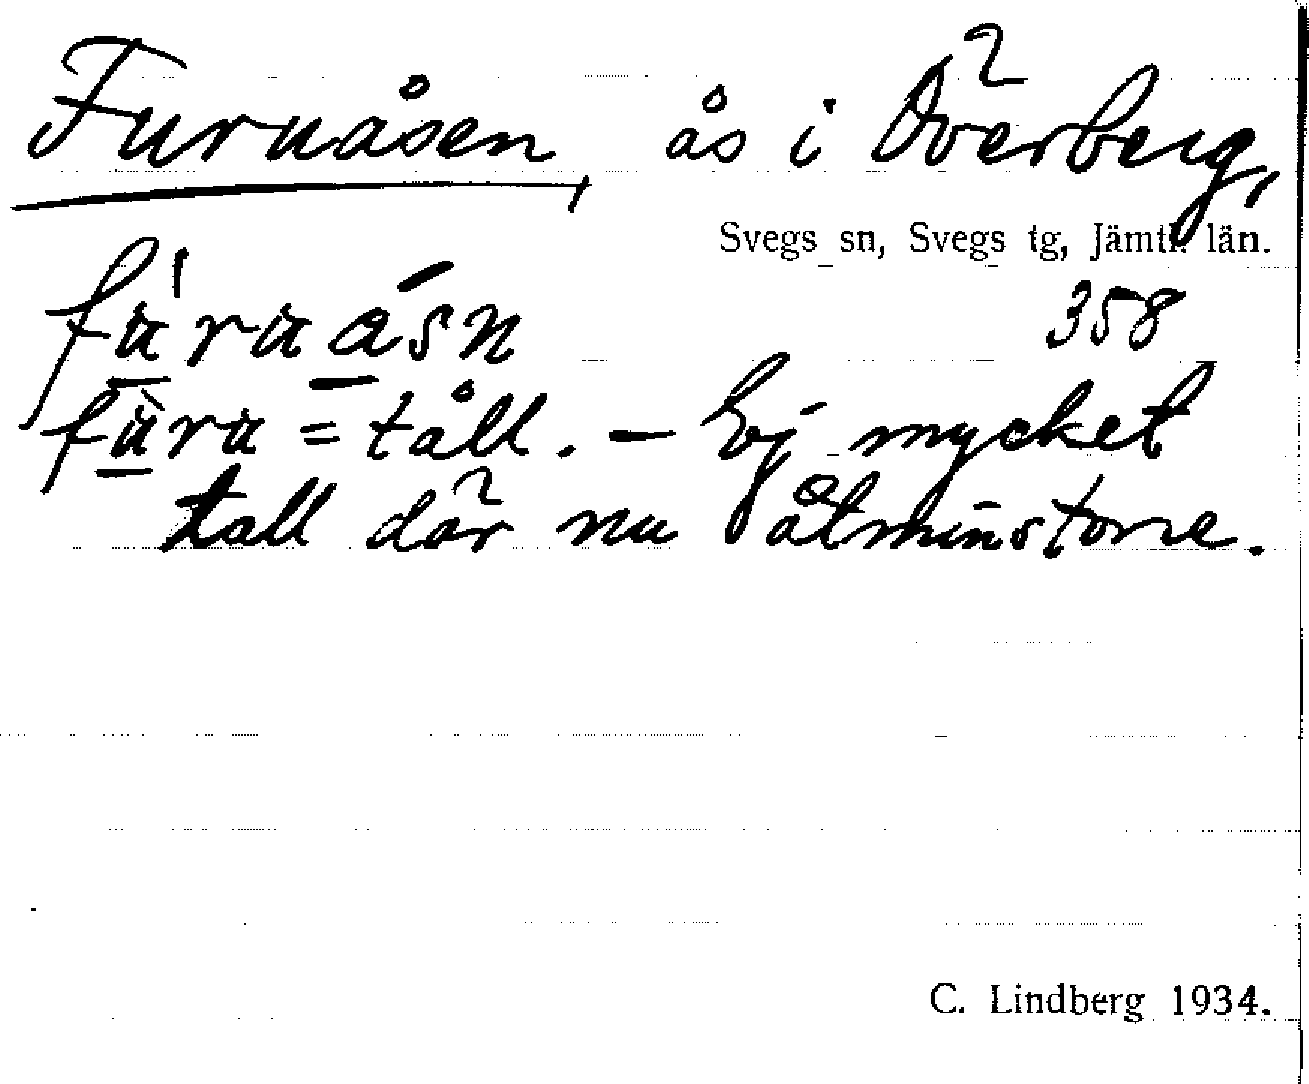 Furuåsen, ås i Överberg,
Svegs sn, Svegs tg, Jämtl. län.
fúruåsn 358
fùru = tåll. – Ej mycket
tall där nu åtminstone.
C. Lindberg 1934.